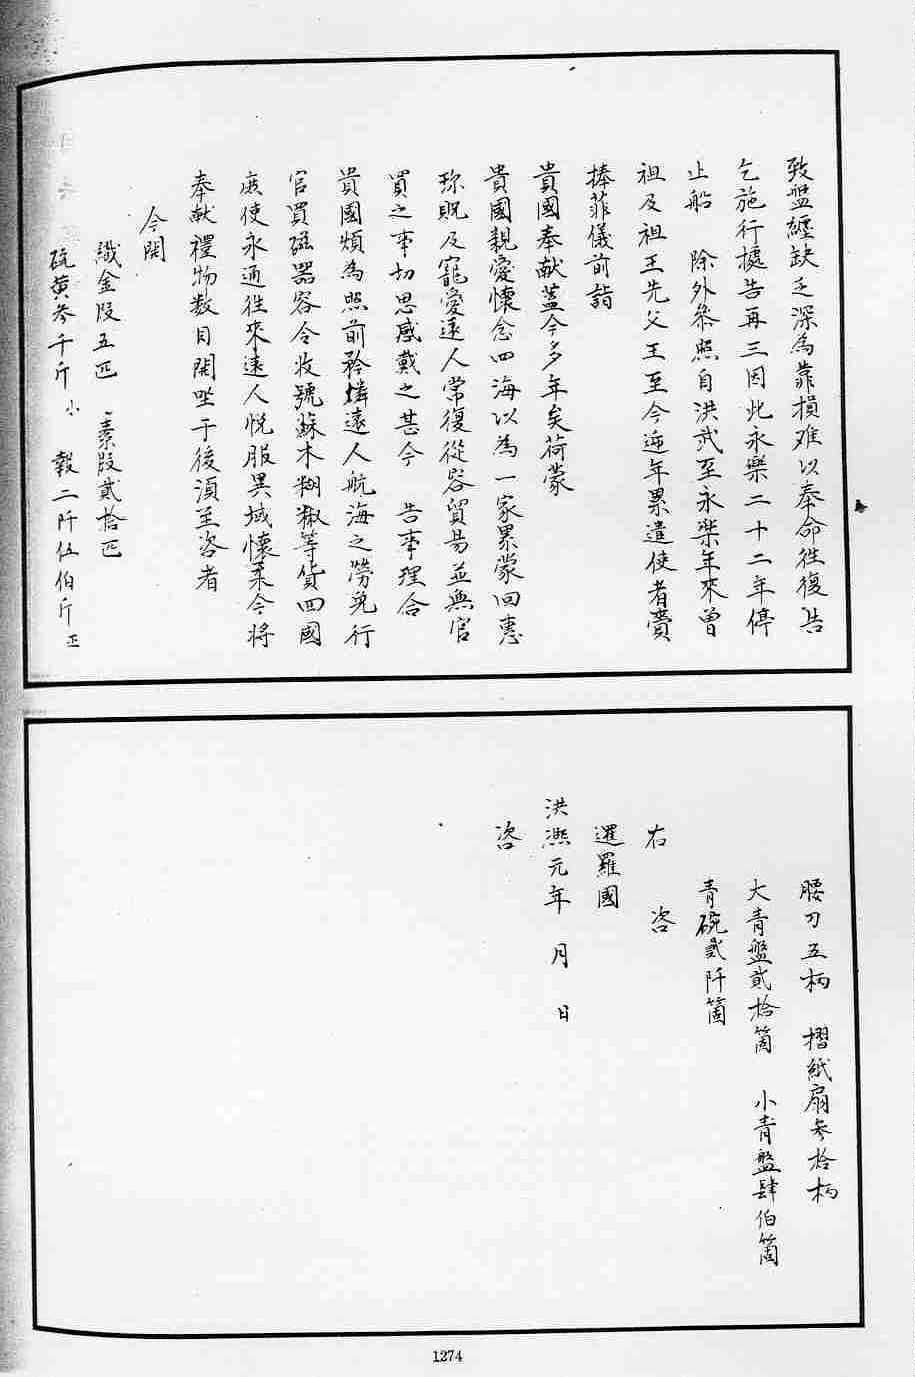 致盤纏缺乏深為靠損难以奉命徃復告
乞施行據告再三因此永樂二十二年停
止船　除外叅照自洪武至永樂年來曾
祖及祖王先父王至今逓年累遣使者賫
捧菲儀前詣
貴國奉献蓋今多年矣荷蒙
貴國親愛懷念四海以為一家累蒙回惠
珎貺及寵愛遠人常復從容貿昜並無官
買之事切思感戴之甚今　告事理合
貴國煩為照前矜憐遠人航海之勞免行
官買磁器容令收號蘇木糊椒等貨四國
庻使永通徃來遠人悦服異域懷柔今將
奉献禮物数目開坐于後湏至咨者
今開
織金段五匹　素段貳拾匹
硫黄参千斤　小　報二阡伍伯斤正
腰刀五柄　摺紙扇参拾柄
大青盤貳拾箇　小青盤肆伯箇
青碗貳阡箇
右　咨
暹羅國
洪熙元年　月　日
咨
1274